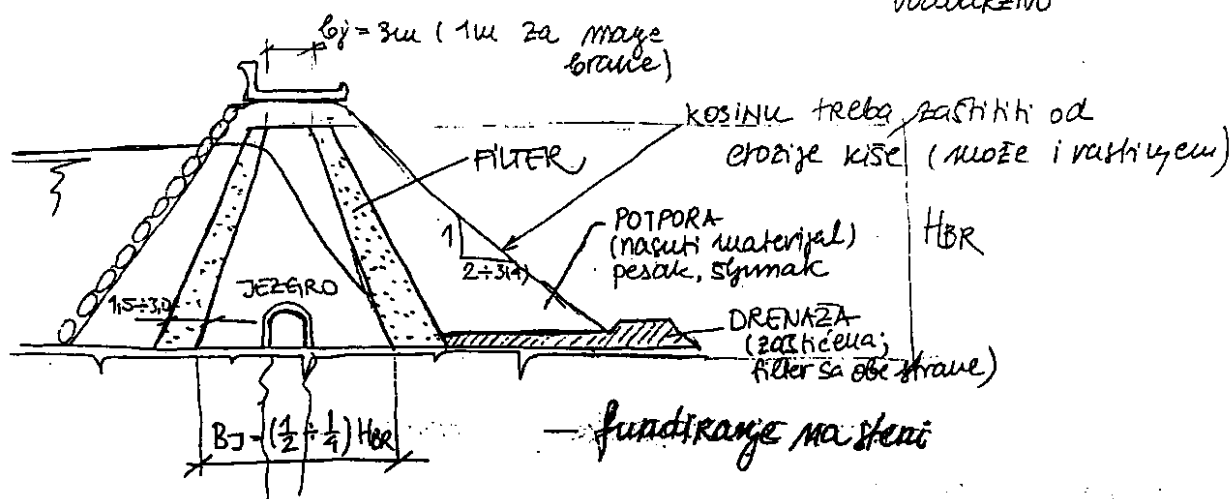 bj = 3m (1m za manje
brane)
KOSINU treba zaštititi od
erozije kiše (može i rastinjem)
FILTER
POTPORA
(nasuti materijal)
pesak, šljunak
HBR
1
2÷3(4)
1,5÷3,0
JEZGRO
DRENAŽA
(zaštićena;
filter sa obe strane)
BJ = (1/2 ÷ 1/4) HBR
— fundiranje na steni